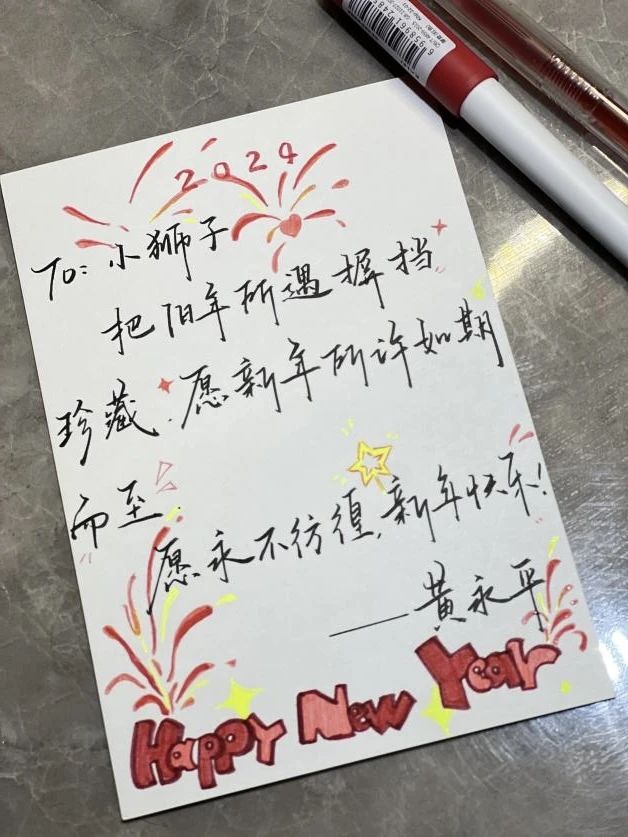 2024
To: 小狮子
把旧年所遇摒挡
珍藏,愿新年所许如期
而至
愿永不彷徨,新年快乐!
——黄永平
Happy New Year